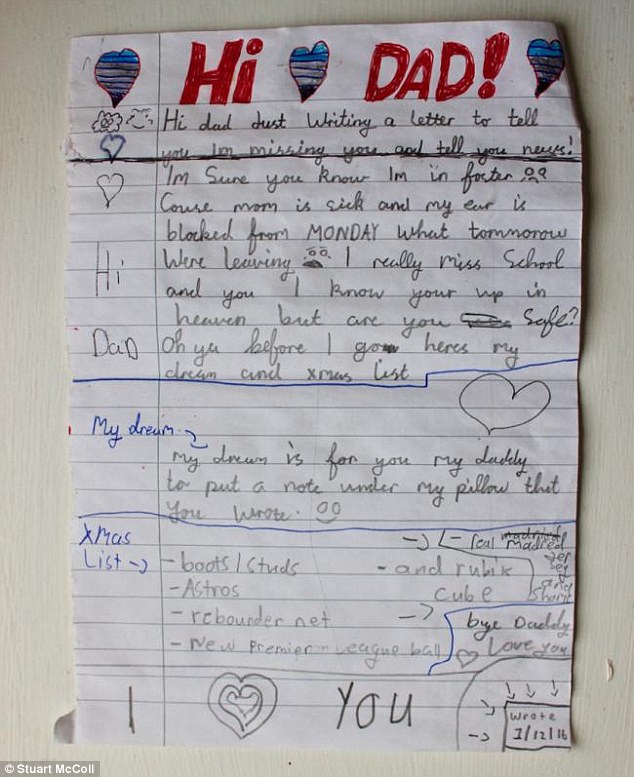 Hi DAD!
Hi dad Just Writing a letter to tell
you Im missing you and tell you news!
Im Sure you know Im in foster
Couse mom is sick and my ear is
blocked from MONDAY what tommorow
Hi
Were leaving I really miss School
and you I know your up in
heaven but are you Safe?
DaD
Oh ya before I go heres my
dream and xmas list
My dream
my dream is for you my daddy
to put a note under my pillow that
you wrote.
Xmas
List
- boots/studs
- Astros
- rebounder net
- New Premier League ball
- real madred
jersey
and
Shorts
- and rubix
cube
bye Daddy
Love you
I YOU
wrote
1/12/16
© Stuart McColl